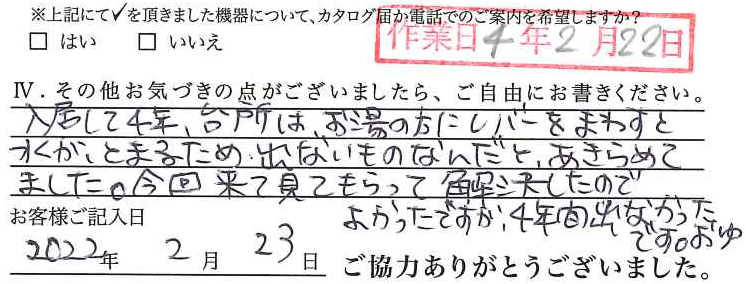 ※上記にて✓を頂きました機器について、カタログ届か電話でのご案内を希望しますか?
□ はい　□ いいえ
作業日4年2月22日
Ⅳ．その他お気づきの点がございましたら、ご自由にお書きください。
入居して4年、台所は、お湯の方にレバーをまわすと
水が、とまるため出ないものなんだと、あきらめて
ました。今回来て見てもらって解決したので
よかったですが、4年間出なかった
です。おゆ
お客様ご記入日
2022年 2月 23日
ご協力ありがとうございました。